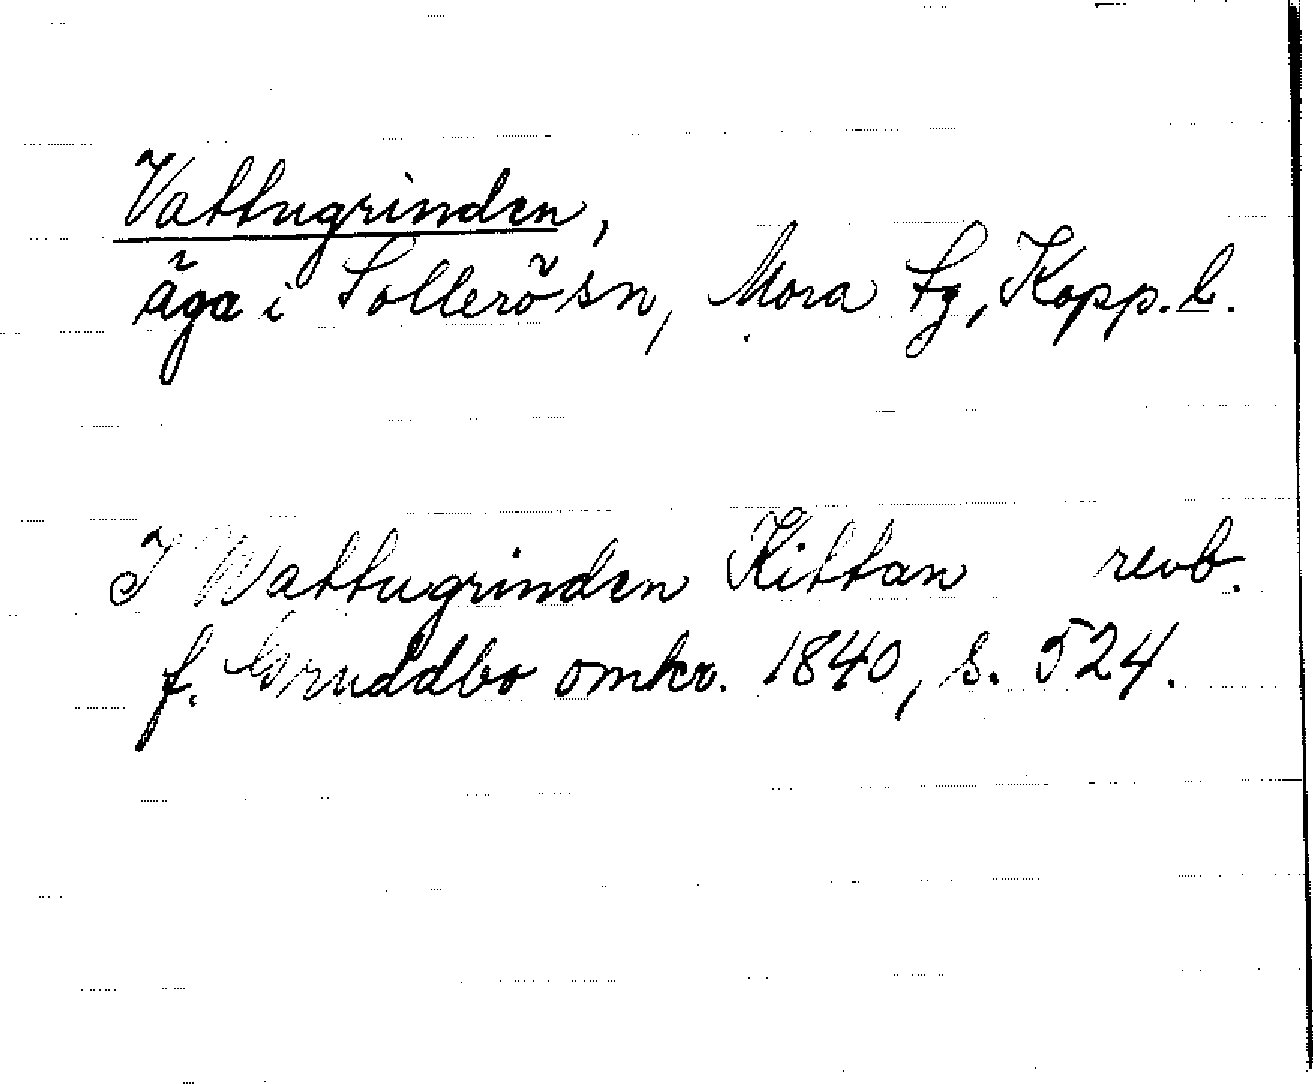 Vattugrinden,
äga i Sollerö sn, Mora tg, Kopp. l.
I Wattugrinden Kittan revb.
f. Gruddbo omkr. 1840, s. 524.